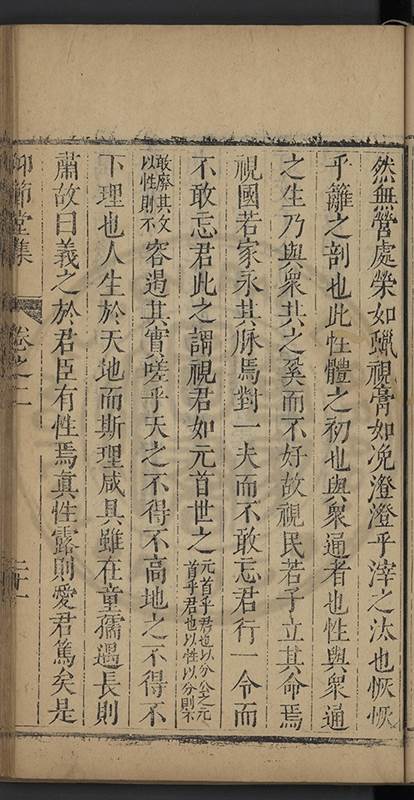 然無營處榮如蠟視膏如浼澄澄乎滓之汰也恢恢
乎籬之剖也此性體之初也與衆通者也性與衆通
之生乃與衆共之奚而不好故視民若子立其命焉
視國若家永其脉焉對一夫而不敢忘君行一令而
不敢忘君此之謂視君如元首世之元首乎君也以分公之元首乎君也以性以分則不
敢廢其文以性則不容遏其實嗟乎天之不得不高地之不得不
下理也人生於天地而斯理咸具雖在童孺遇長則
肅故曰義之於君臣有性焉真性露則愛君篤矣是
仰節堂集 卷之二